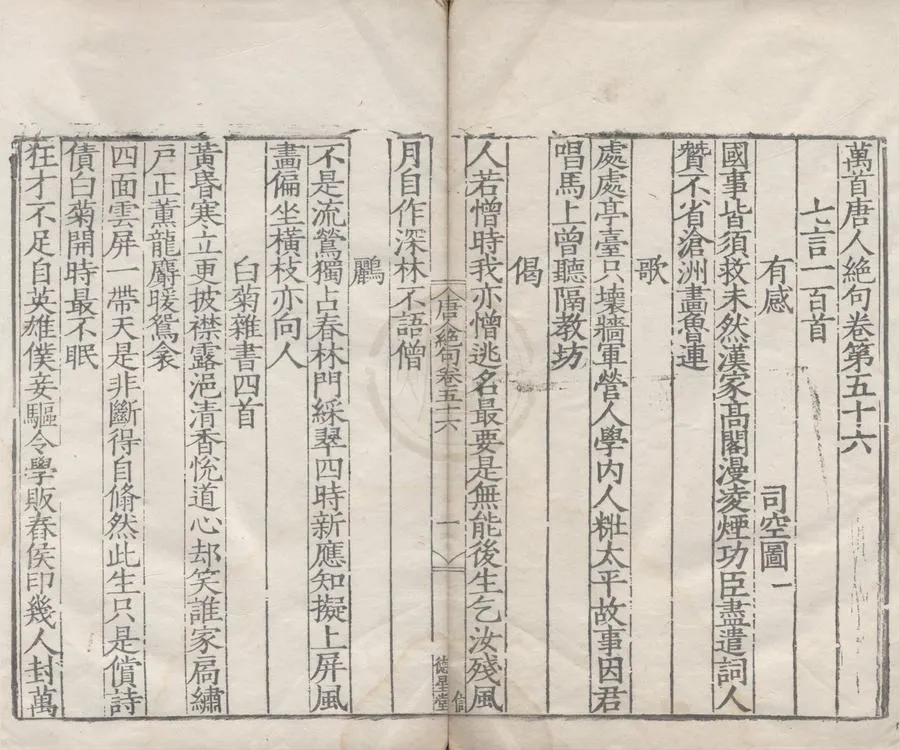 萬首唐人絶句卷第五十六
七言一百首
有感 司空圖一
國事皆須救未然漢家髙閣漫凌煙功臣盡遣詞人
贊不省滄洲畫魯連
歌
處處亭臺只壞牆軍營人學內人粧太平故事因君
唱馬上曾聽隔教坊
偈
人若憎時我亦憎逃名最要是無能後生乞汝殘風
唐人絶句卷五十六 一 德星堂
月自作深林不語僧
鸝
不是流鶯獨占春林門綵翠四時新應知擬上屏風
畫偏坐橫枝亦向人
白菊雜書四首
黃昏寒立更披襟露浥清香悅道心却笑誰家扃繡
戸正薰龍麝暖鴛衾
四面雲屏一帶天是非斷得自翛然此生只是償詩
債白菊開時最不眠
狂才不足自英雄僕妾驅令學販舂侯印幾人封萬